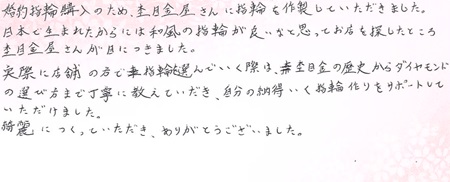 婚約指輪購入のため、杢目金屋さんに指輪を作製していただきました。
日本で生まれたからには和風の指輪が良いなと思ってお店を探したところ
杢目金屋さんが目につきました。
実際に店舗の方で指輪を選んでいく際は、杢目金の歴史からダイヤモンド
の選び方まで丁寧に教えていだき、自分の納得いく指輪作りをサポートして
いただけました。
綺麗につくっていただき、ありがとうございました。